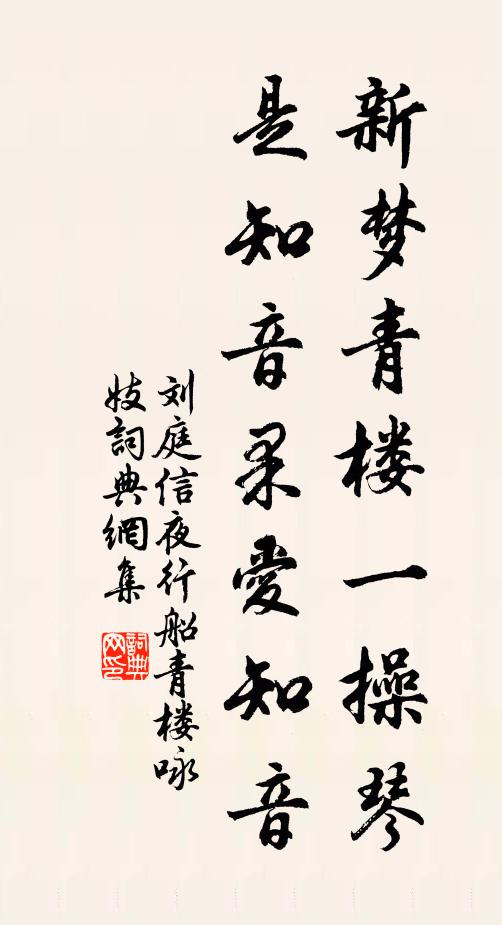 新梦青楼一操琴
是知音果爱知音
刘庭信夜行船青楼咏
妓詞典網集
詞典
网印